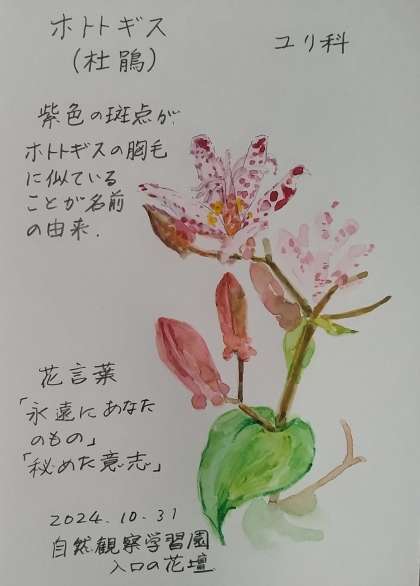 ホトトギス
(杜鵑)
ユリ科
紫色の斑点が
ホトトギスの胸毛
に似ている
ことが名前
の由来.
花言葉
「永遠にあなた
のもの」
「秘めた意志」
2024.10.31
自然観察学習園
入口の花壇